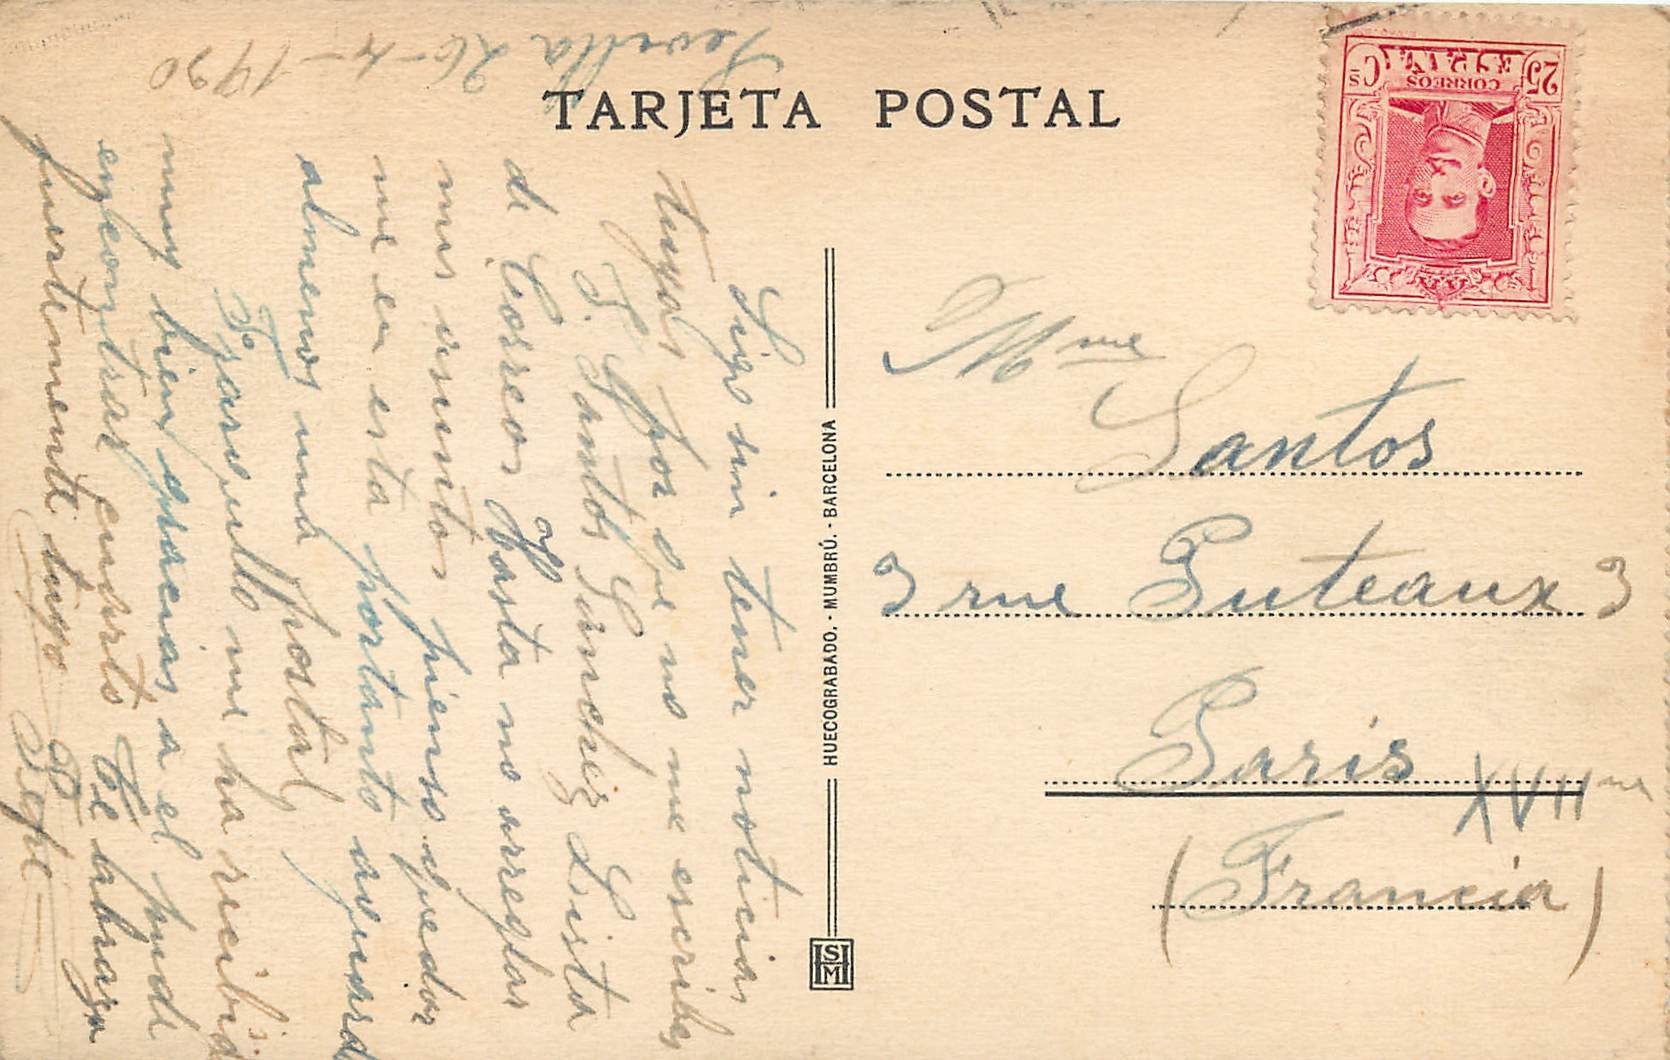 TARJETA POSTAL
Sevilla 26-4-1930
Sigo sin tener noticias
tuyas por que no me escribes
F. Santos Sanchez Lista
de Correos Hasta no arreglar
mis asuntos pienso quedar
me en esta por tanto aguardo
almenos una postal
Fsº Zarzuelo me ha recibido
muy bien gracias a el pude
enkontrar cuarto Te abraza
fuertemente tuyo Pepe
HUECOGRABADO. - MUMBRÚ. - BARCELONA
SHM
CORREOS
ESPAÑA
25 Cs
Mme
Santos
3 rue Puteaux 3
Paris XVIIme
(Francia)